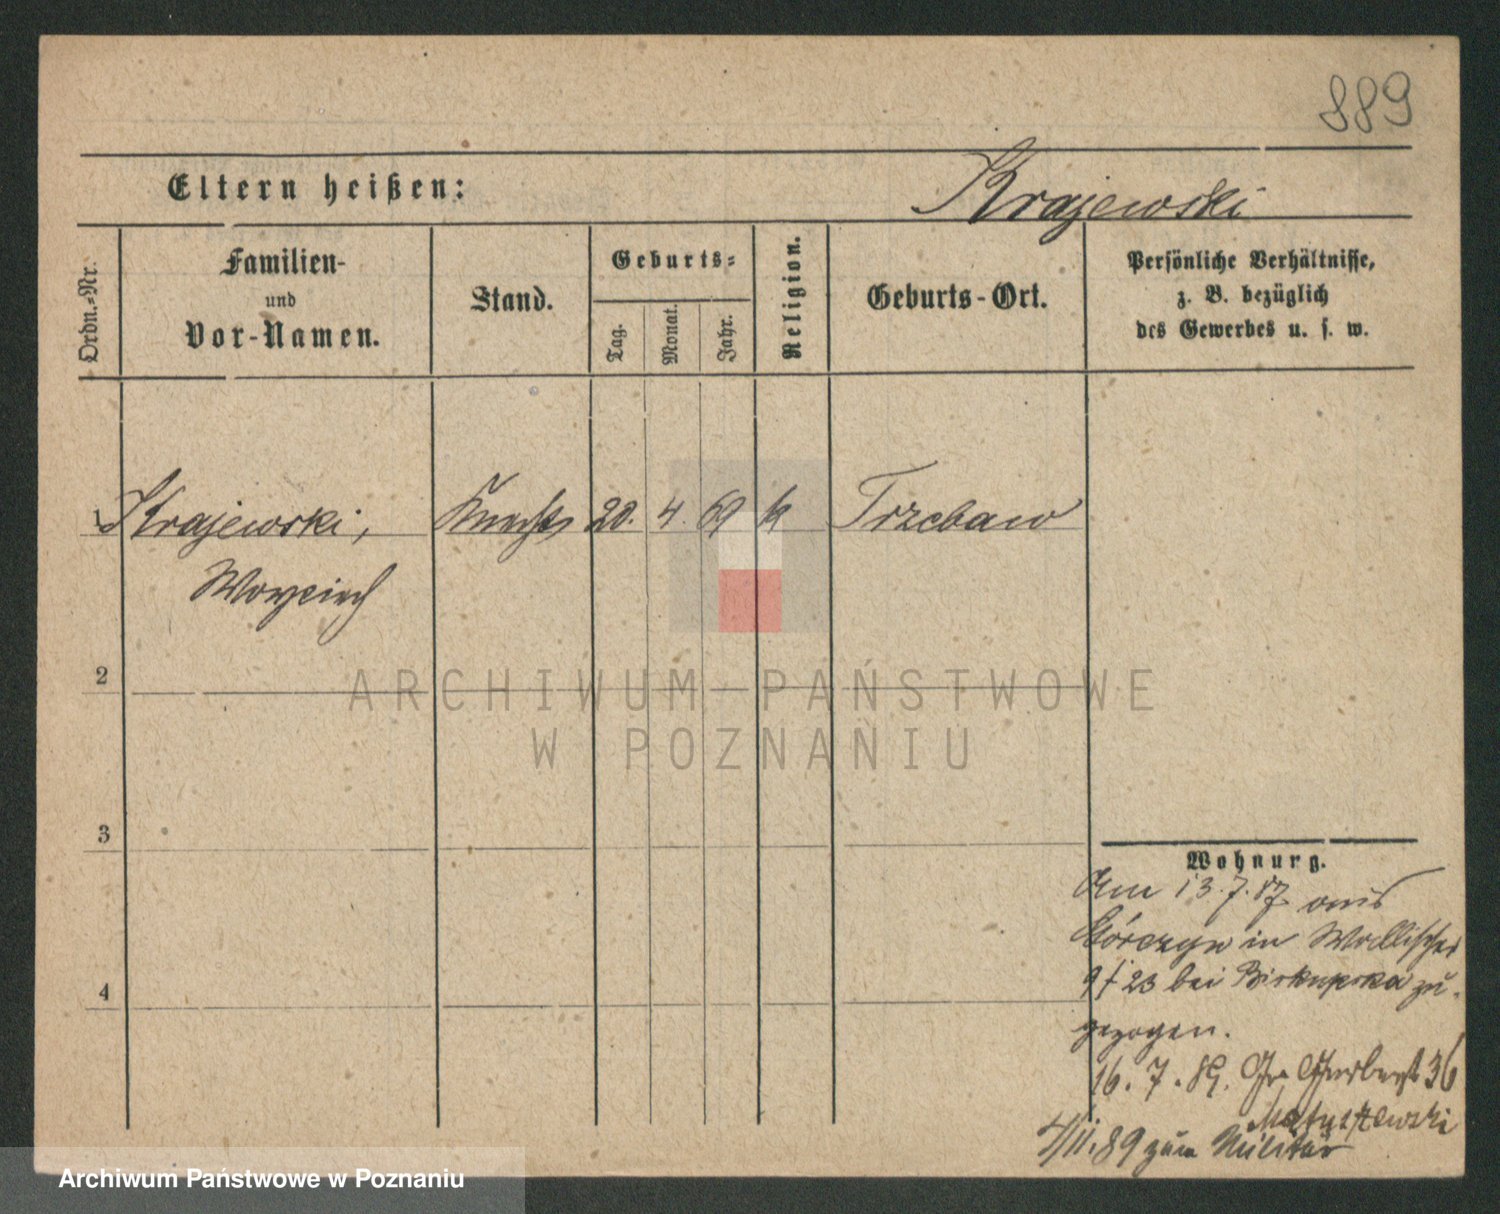 889
Eltern heißen:
Krajewski
Ordn.-Nr.
Familien-
und
Vor-Namen.
Stand.
Geburts-
Tag.
Monat.
Jahr.
Religion.
Geburts-Ort.
Persönliche Verhältnisse,
z. B. bezüglich
des Gewerbes u. s. w.
1 Krajewski, Knecht 20. 4. 69 k Trzebaw
Woyciech
2
3
4
Wohnung.
Am 13.7.87 aus
Górczyn in Wallischei
9/23 bei zu-
gezogen.
16. 7. 89. Gr Gerberst 36
Matuszewski
4/11.89 zum Militär
ARCHIWUM PAŃSTWOWE
W POZNANIU
Archiwum Państwowe w Poznaniu